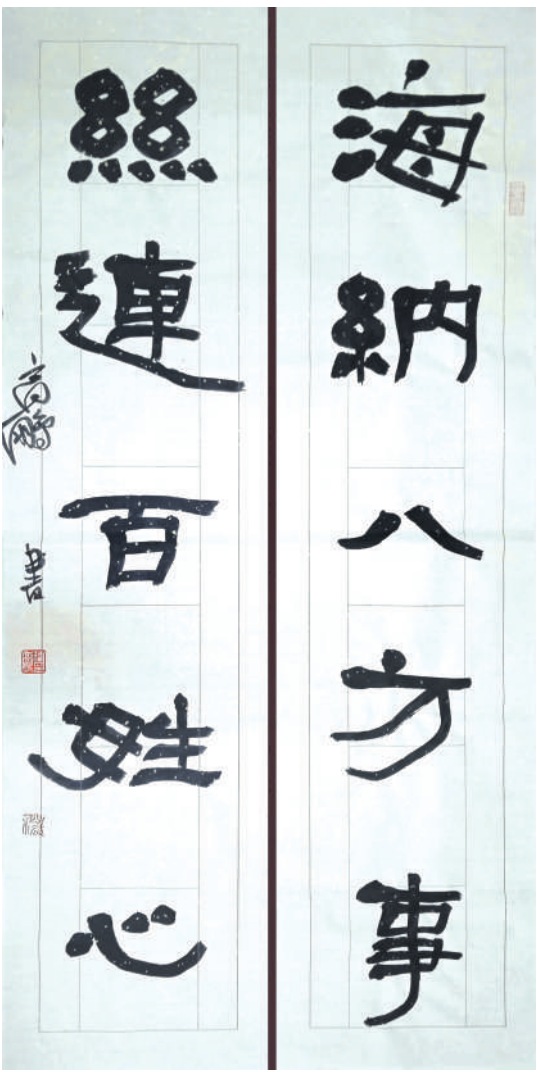 海納八方事
絲連百姓心
高鵬
書